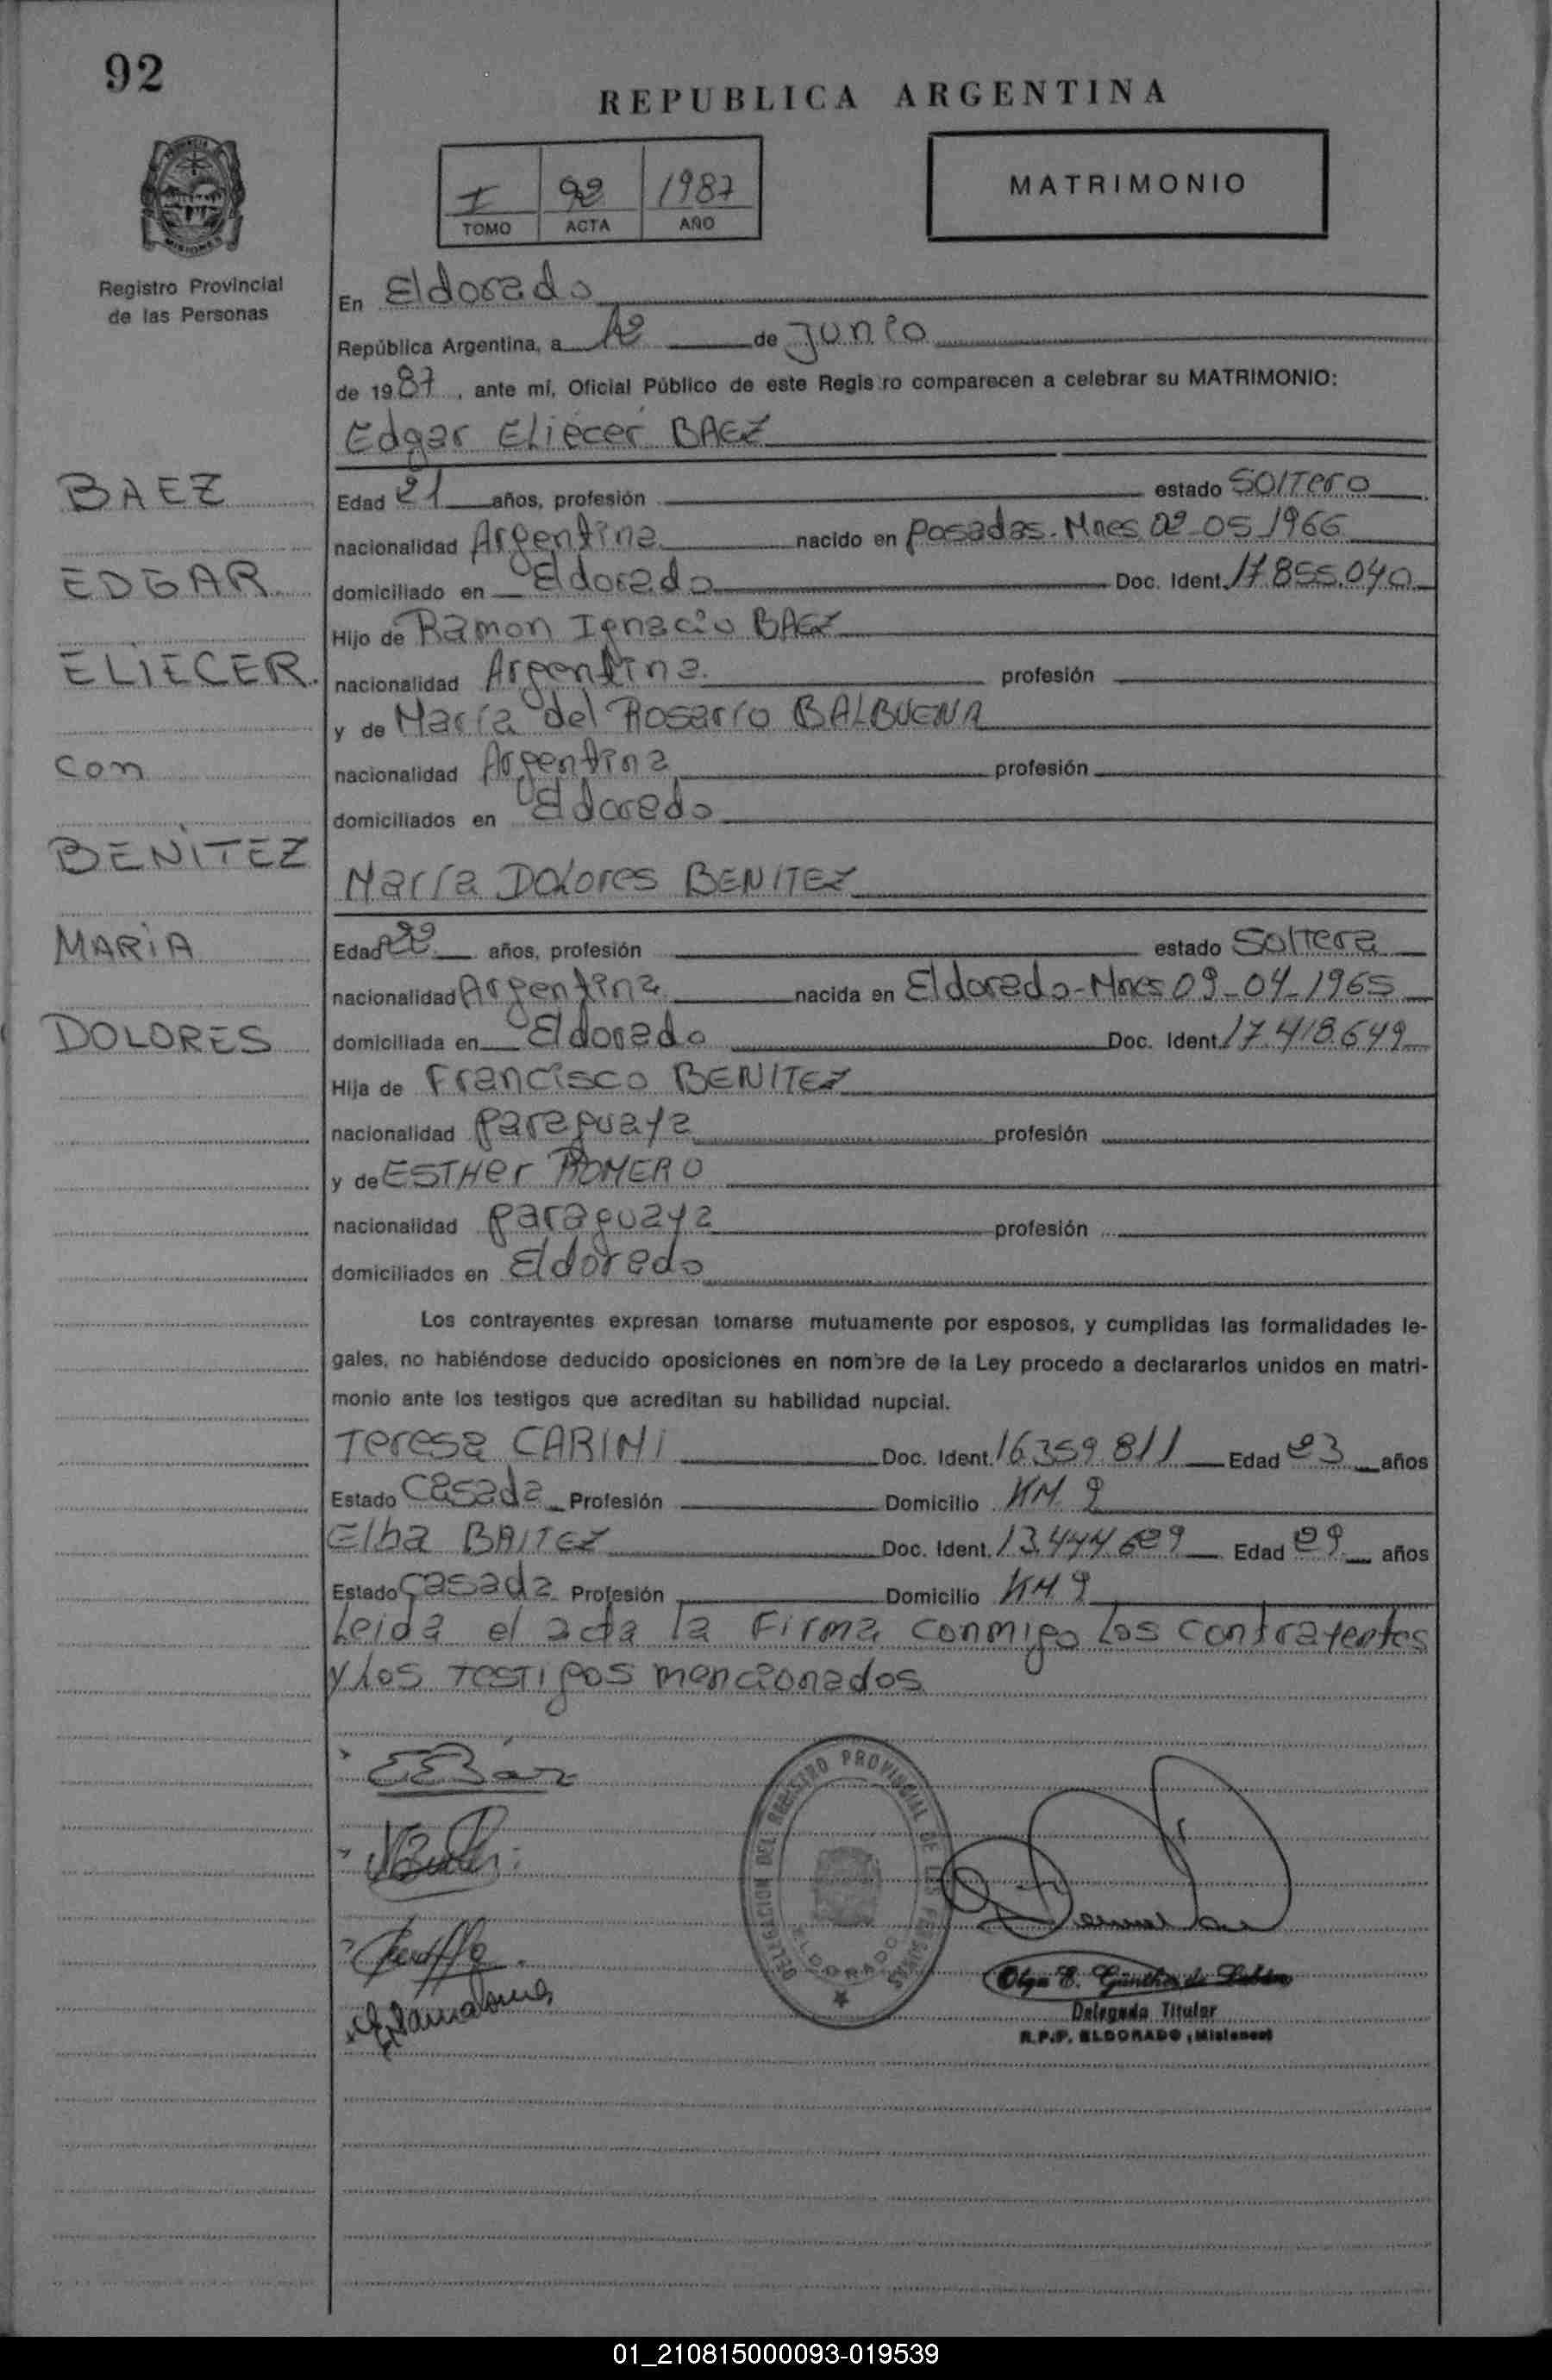 92
REPUBLICA ARGENTINA
I 92 1987
TOMO ACTA AÑO
MATRIMONIO
PROVINCIA
MISIONES
Registro Provincial
de las Personas
En Eldorado
República Argentina, a 12 de Junio
de 1987, ante mí, Oficial Público de este Registro comparecen a celebrar su MATRIMONIO:
Edgar Eliécer BAEZ
BAEZ
EDGAR
ELIECER.
con
BENITEZ
MARIA
DOLORES
Edad 21 años, profesión estado Soltero
nacionalidad Argentina nacido en Posadas-Mnes 02-05-1966
domiciliado en Eldorado Doc. Ident. 17.855.040
Hijo de Ramon Ignacio BAEZ
nacionalidad Argentina. profesión
y de María del Rosario BALBUENA
nacionalidad Argentina profesión
domiciliados en Eldorado
María Dolores BENITEZ
Edad 22 años, profesión estado Soltera
nacionalidad Argentina nacida en Eldorado-Mnes 09-04-1965
domiciliada en Eldorado Doc. Ident. 17.418.649
Hija de Francisco BENITEZ
nacionalidad paraguaya profesión
y de ESTHer ROMERO
nacionalidad paraguaya profesión
domiciliados en Eldorado
Los contrayentes expresan tomarse mutuamente por esposos, y cumplidas las formalidades le-
gales, no habiéndose deducido oposiciones en nombre de la Ley procedo a declararlos unidos en matri-
monio ante los testigos que acreditan su habilidad nupcial.
Teresa CARINI Doc. Ident. 16.359.811 Edad 23 años
Estado Casada Profesión Domicilio KM 9
Elba BAITEZ Doc. Ident. 13.444.629 Edad 29 años
Estado Casada Profesión Domicilio KM 9
Leida el acta la Firma conmigo los contrayentes
y los Testigos mencionados
DELEGACION DEL REGISTRO PROVINCIAL DE LAS PERSONAS
ELDORADO
Olga E. Günther de
Delegada Titular
R.P.P. ELDORADO (Misiones)
01_210815000093-019539